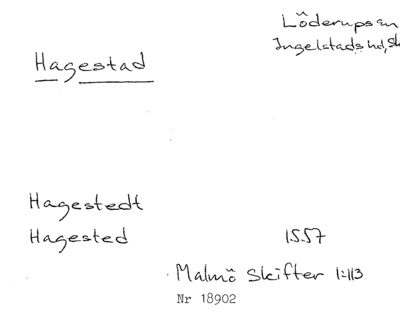 Löderups sn
Ingelstads hd, Sk
Hagestad
Hagestedt
Hagested 1557
Malmö Skifter 1:113
Nr 18902